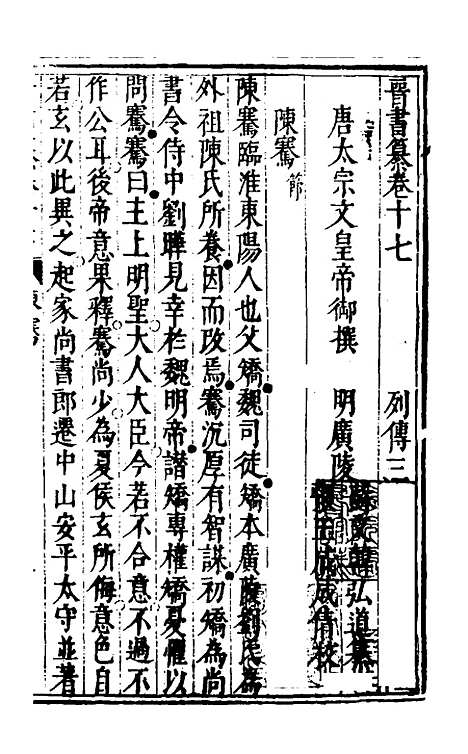 晉書纂卷十七 列傳三
唐太宗文皇帝御撰 明廣陵
弘道纂
陳騫 節
陳騫臨淮東陽人也父矯魏司徒矯本廣陵劉氏為
外祖陳氏所養因而改焉騫沉厚有智謀初矯為尚
書令侍中劉曄見幸於魏明帝譖矯專權矯憂懼以
問騫騫曰主上明聖大人大臣今若不合意不過不
作公耳後帝意果釋騫尚少為夏侯玄所侮意色自
若玄以此異之起家尚書郎遷中山安平太守並著